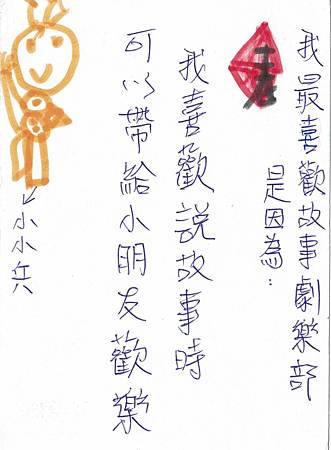 我最喜歡故事劇樂部
是因為：
春
我喜歡說故事時
可以帶給小朋友歡樂
小小兵